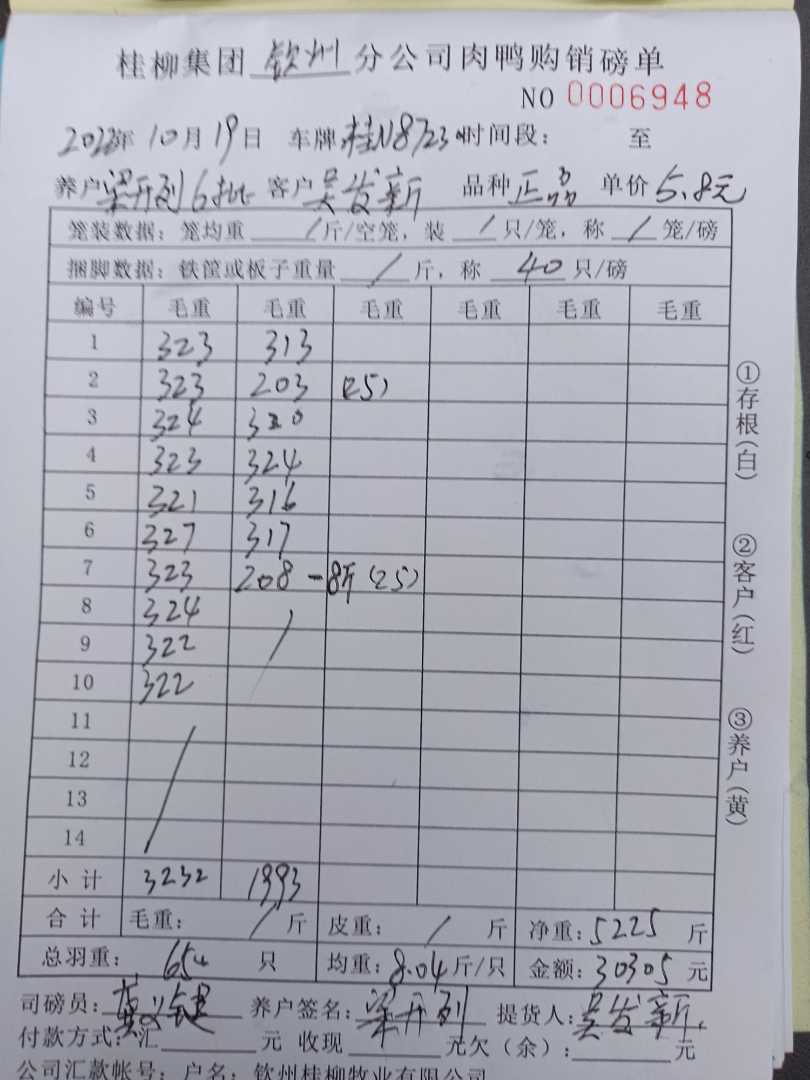 桂柳集团 钦州 分公司肉鸭购销磅单
NO 0006948
2022年 10月 19日 车牌:桂N8723 时间段: 至
养户 梁开列6批 客户 吴发新 品种 正品 单价 5.8元
笼装数据: 笼均重 / 斤/空笼, 装 / 只/笼, 称 / 笼/磅
捆脚数据: 铁筐或板子重量 / 斤, 称 40 只/磅
编号 毛重 毛重 毛重 毛重 毛重 毛重
1 323 313
2 323 203 (25)
3 324 320
4 323 324
5 321 316
6 327 317
7 323 208 -8斤 (25)
8 324 /
9 322
10 322
11 /
12
13
14
小计 3232 1993
合计 毛重: / 斤 皮重: / 斤 净重: 5225 斤
总羽重: 650 只 均重: 8.04 斤/只 金额: 30305 元
司磅员: 养户签名: 梁开列 提货人: 吴发新
付款方式: 汇 元 收现 元欠(余): 元
公司汇款帐号: 户名: 钦州桂柳牧业有限公司
①存根(白)
②客户(红)
③养户(黄)